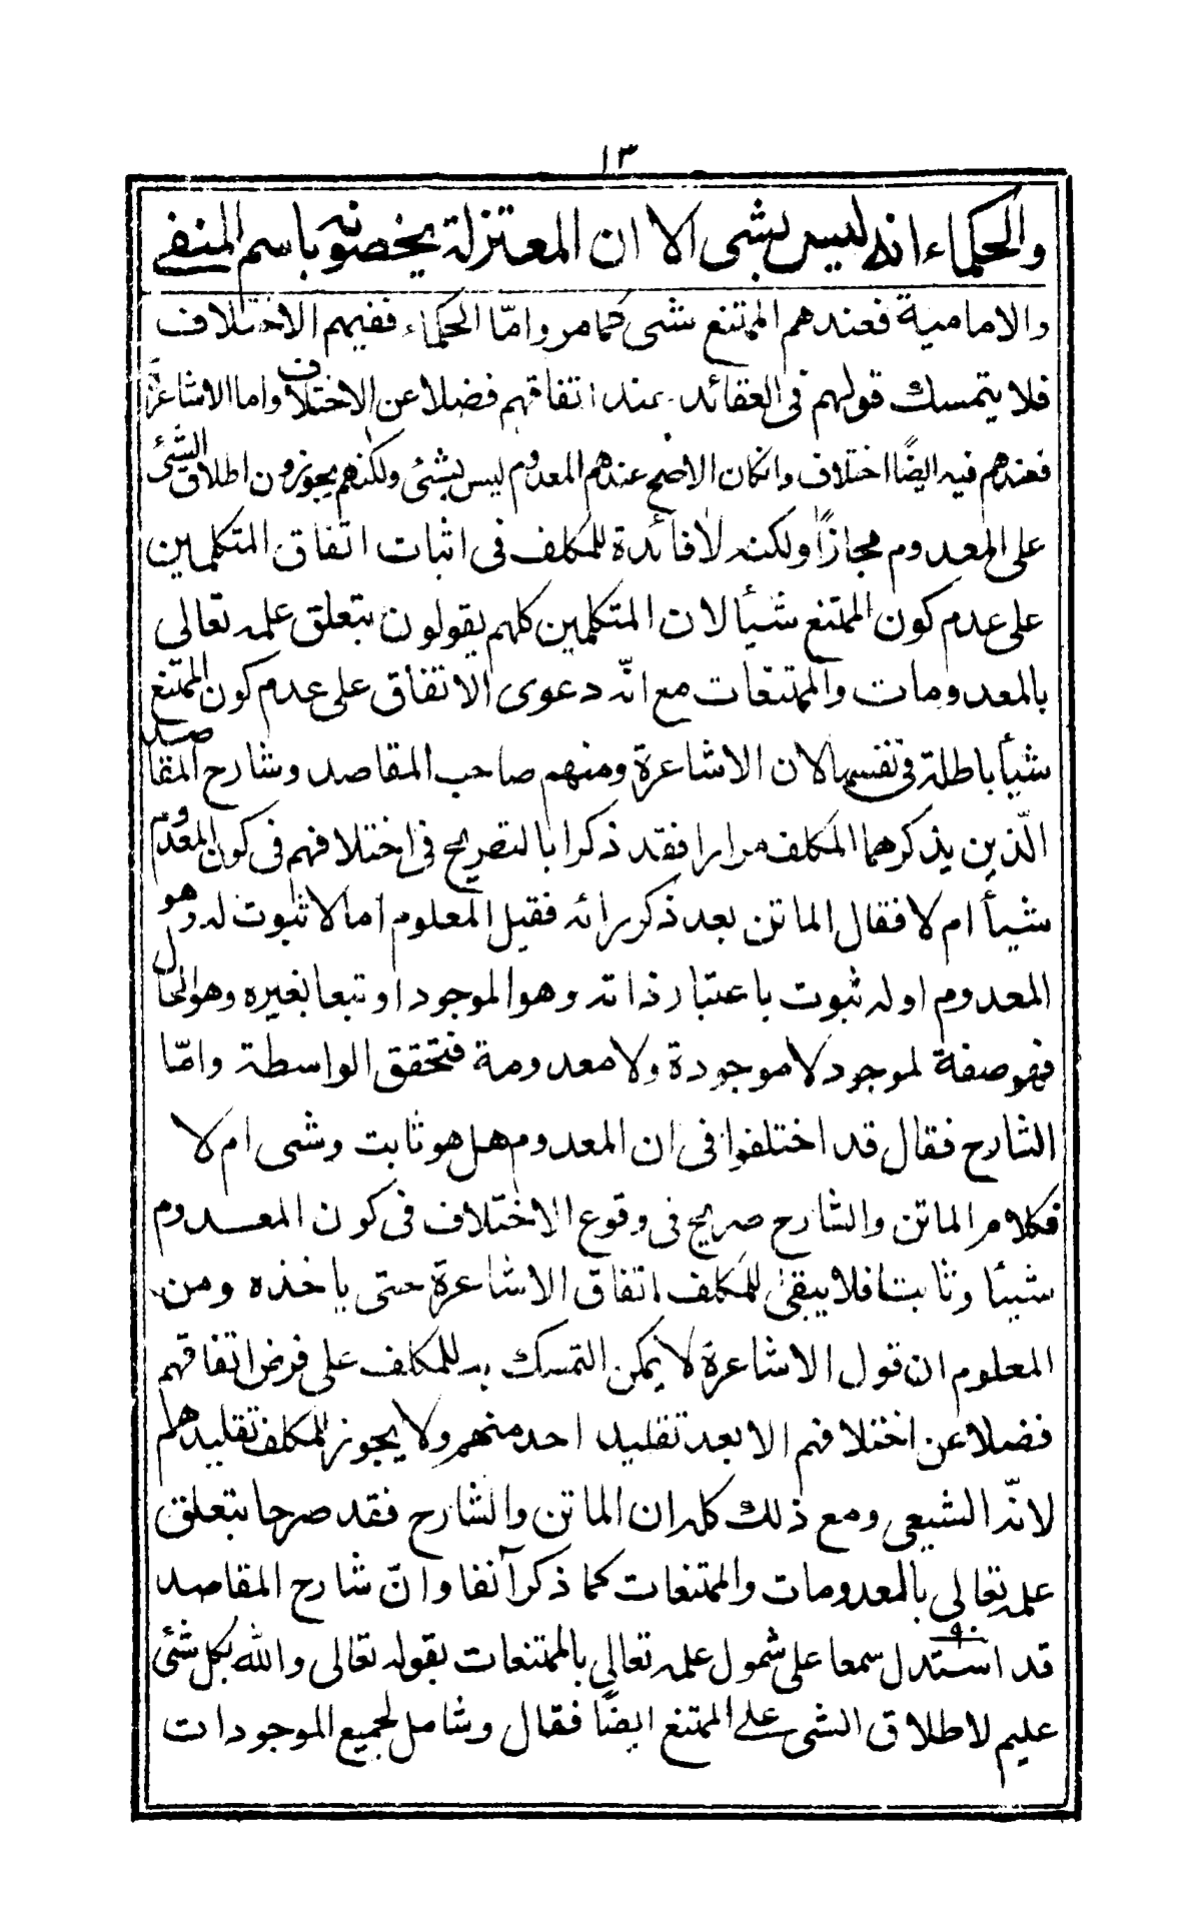 ١٣
والحكماء انه ليس بشى الا ان المعتزلة يخصونه باسم المنفى
والامامية فعندهم الممتنع شى كما مر وامّا الحكماء ففيهم الاختلاف
فلا يتمسك قولهم فى العقائد عند اتفاقهم فضلا عن الاختلاف واما الاشاعرة
فعندهم فيه ايضًا اختلاف وانكان الاصح عندهم المعدوم ليس بشئ ولكنهم يجوزون اطلاق الشئ
على المعدوم مجازًا ولكنه لا فائدة للمكلف فى اثبات اتفاق المتكلمين
على عدم كون الممتنع شيأ لان المتكلمين كلهم يقولون بتعلق علمه تعالى
بالمعدومات والممتنعات مع انّه دعوى الاتفاق على عدم كون الممتنع
شيأ باطلة فى نفسها لان الاشاعرة ومنهم صاحب المقاصد وشارح المقاصد
الّذين يذكرهما المكلف مرارا فقد ذكرا بالتصريح فى اختلافهم فى كون المعدوم
شيأ ام لا فقال الماتن بعد ذكر رائه فقيل المعلوم اما لا ثبوت له وهو
المعدوم او له ثبوت باعتبار ذاته وهو الموجود او تبعا بغيره وهو الحال
فهو صفة لموجود لا موجودة ولا معدومة فتحقق الواسطة وامّا
الشارح فقال قد اختلفوا فى ان المعدوم هل هو ثابت وشى ام لا
فكلام الماتن والشارح صريح فى وقوع الاختلاف فى كون المعدوم
شيئا وثابتا فلا يبقى للمكلف اتفاق الاشاعرة حتى ياخذه ومن
المعلوم ان قول الاشاعرة لا يمكن التمسك به للمكلف على فرض اتفاقهم
فضلا عن اختلافهم الا بعد تقليد احد منهم ولا يجوز للمكلف تقليدهم
لانّه الشيعى ومع ذلك كله ان الماتن والشارح فقد صرحا بتعلق
علمه تعالى بالمعدومات والممتنعات كما ذكر آنفا وانّ شارح المقاصد
قد استدل سمعا على شمول علمه تعالى بالممتنعات بقوله تعالى والله بكل شئ
عليم لاطلاق الشى على الممتنع ايضًا فقال وشامل لجميع الموجودات